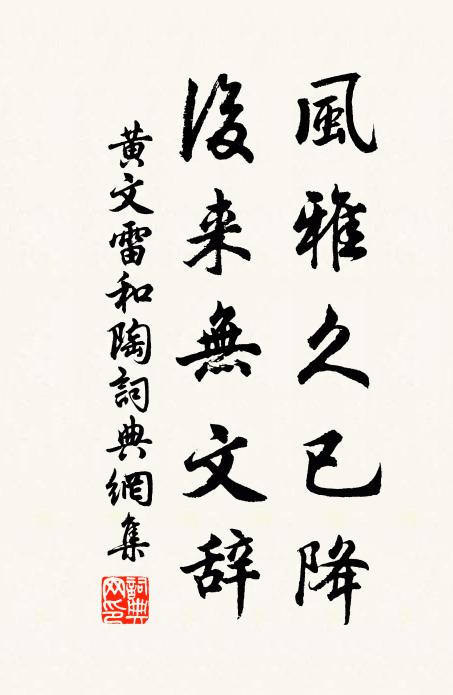 風雅久已降
後来無文辞
黃文雷和陶詞典網集
詞典网印